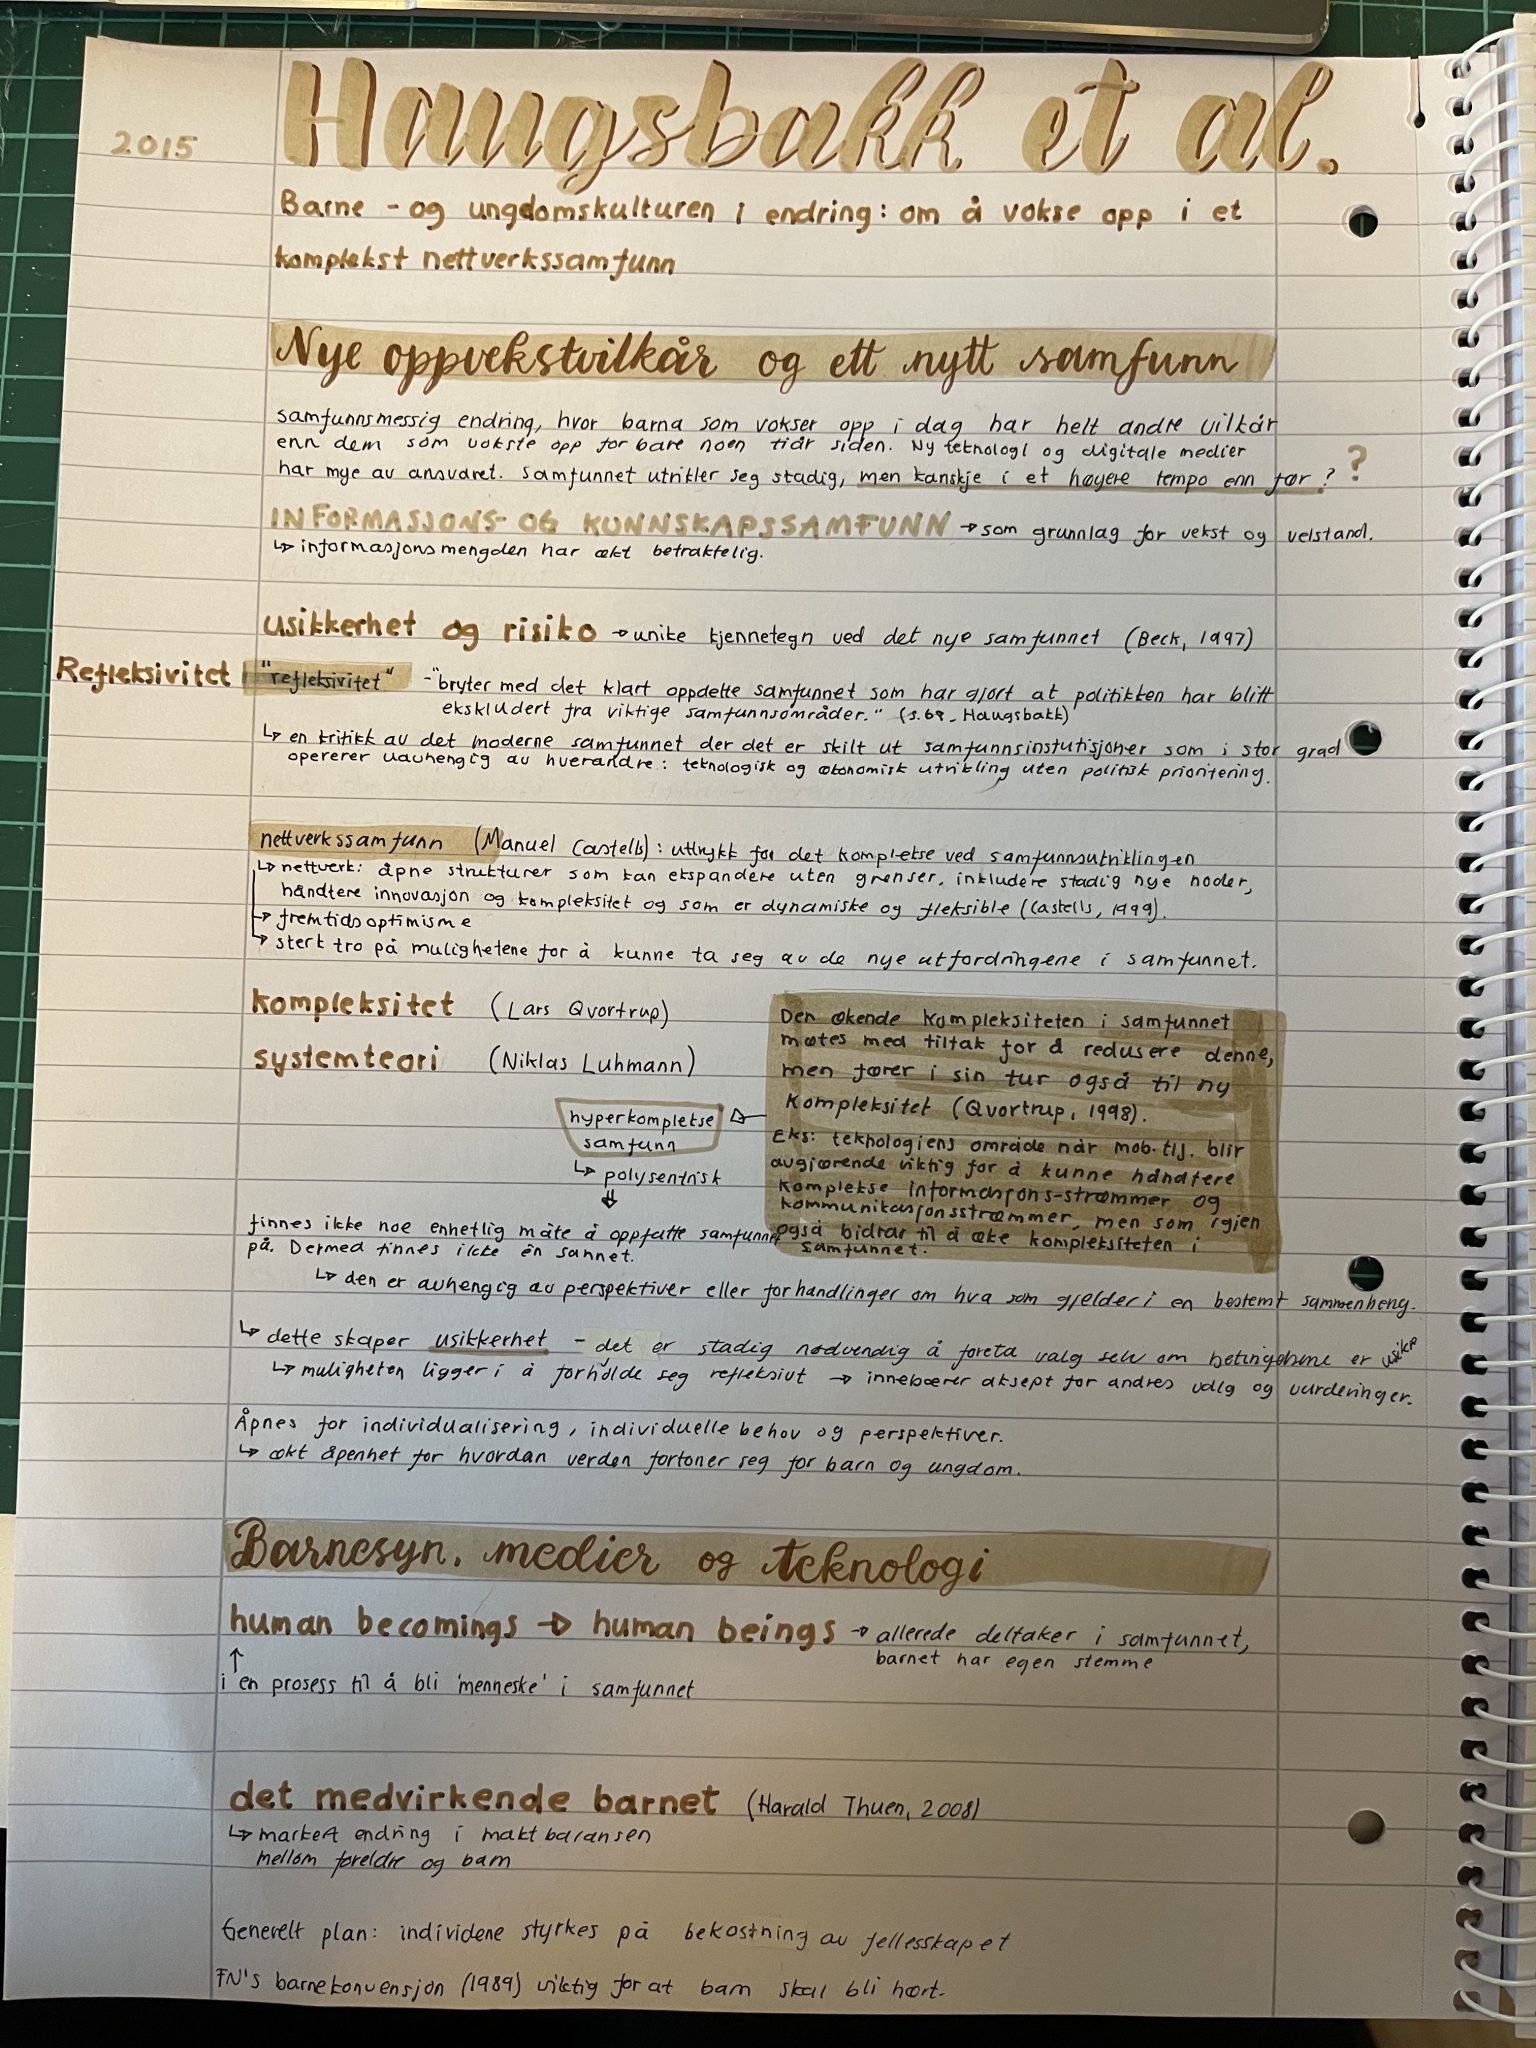 2015
Haugsbakk et al.
Barne - og ungdomskulturen i endring: om å vokse opp i et
komplekst nettverkssamfunn
Nye oppvekstvilkår og ett nytt samfunn
samfunnsmessig endring, hvor barna som vokser opp i dag har helt andre vilkår
enn dem som vokste opp for bare noen tiår siden. Ny teknologi og digitale medier
har mye av ansvaret. samfunnet utvikler seg stadig, men kanskje i et høyere tempo enn før? ?
INFORMASJONS- OG KUNNSKAPSSAMFUNN → som grunnlag for vekst og velstand.
↳ informasjonsmengden har økt betraktelig.
usikkerhet og risiko → unike kjennetegn ved det nye samfunnet (Beck, 1997)
Refleksivitet "refleksivitet" - "bryter med det klart oppdelte samfunnet som har gjort at politikken har blitt
ekskludert fra viktige samfunnsområder." (s.68, Haugsbakk)
↳ en kritikk av det moderne samfunnet der det er skilt ut samfunnsinstutisjoner som i stor grad
opererer uavhengig av hverandre: teknologisk og økonomisk utvikling uten politisk prioritering.
nettverkssamfunn (Manuel Castells): uttrykk for det komplekse ved samfunnsutviklingen
↳ nettverk: åpne strukturer som kan ekspandere uten grenser, inkludere stadig nye noder,
håndtere innovasjon og kompleksitet og som er dynamiske og fleksible (Castells, 1999).
↳ fremtidsoptimisme
↳ sterk tro på mulighetene for å kunne ta seg av de nye utfordringene i samfunnet.
kompleksitet (Lars Qvortrup)
systemteori (Niklas Luhmann)
Den økende kompleksiteten i samfunnet
møtes med tiltak for å redusere denne,
men fører i sin tur også til ny
kompleksitet (Qvortrup, 1998).
Eks: teknologiens område når mob.tlf. blir
avgjørende viktig for å kunne håndtere
komplekse informasjons-strømmer og
kommunikasjonsstrømmer, men som igjen
også bidrar til å øke kompleksiteten i
samfunnet.
hyperkomplekse
samfunn
↳ polysentrisk
⇓
finnes ikke noe enhetlig måte å oppfatte samfunnet
på. Dermed finnes ikke én sannet.
↳ den er avhengig av perspektiver eller forhandlinger om hva som gjelder i en bestemt sammenheng.
↳ dette skaper usikkerhet - det er stadig nødvendig å foreta valg selv om betingelsene er usikre
↳ muligheten ligger i å forholde seg refleksivt → innebærer aksept for andres valg og vurderinger.
Åpnes for individualisering, individuelle behov og perspektiver.
↳ økt åpenhet for hvordan verden fortoner seg for barn og ungdom.
Barnesyn, medier og teknologi
human becomings → human beings → allerede deltaker i samfunnet,
barnet har egen stemme
↑
i en prosess til å bli 'menneske' i samfunnet
det medvirkende barnet (Harald Thuen, 2008)
↳ markert endring i maktbalansen
mellom foreldre og barn
Generelt plan: individene styrkes på bekostning av fellesskapet
FN's barnekonvensjon (1989) viktig for at barn skal bli hørt.